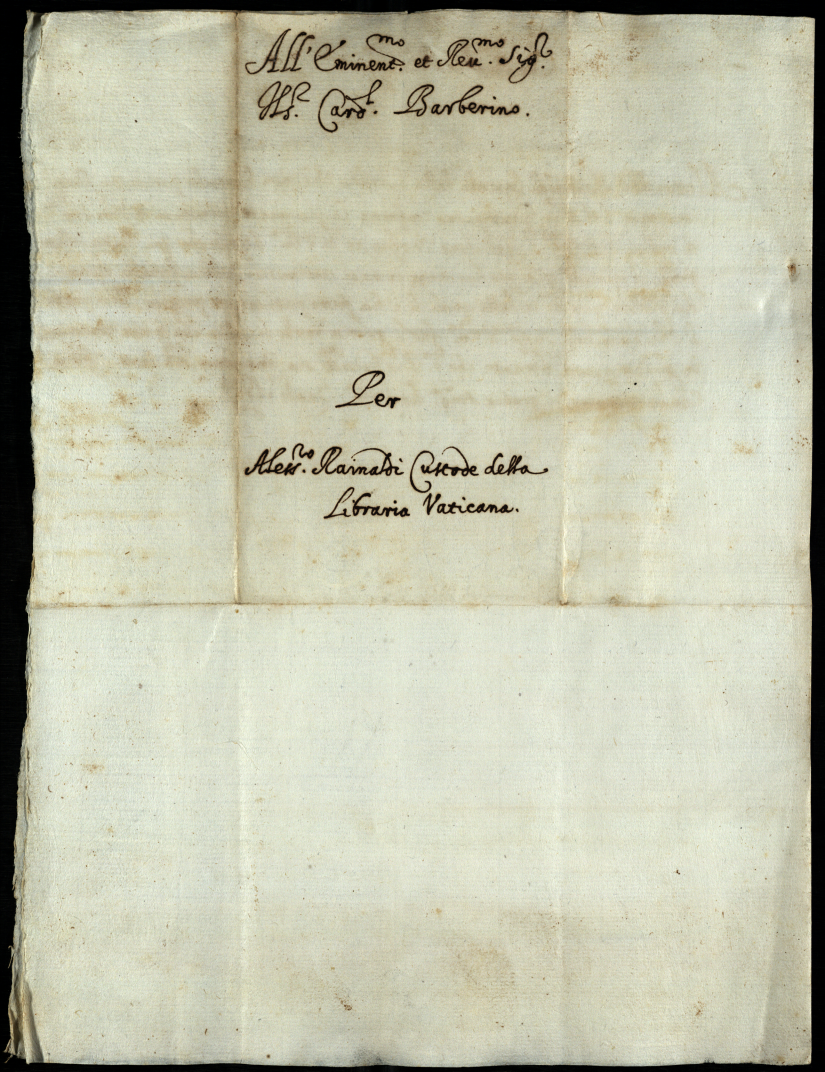 All' Eminent.mo et Reu.mo Sig.r
Il S.r Card.l Barberino.
Per
Aless.ro Rainaldi Custode della
Libraria Vaticana.